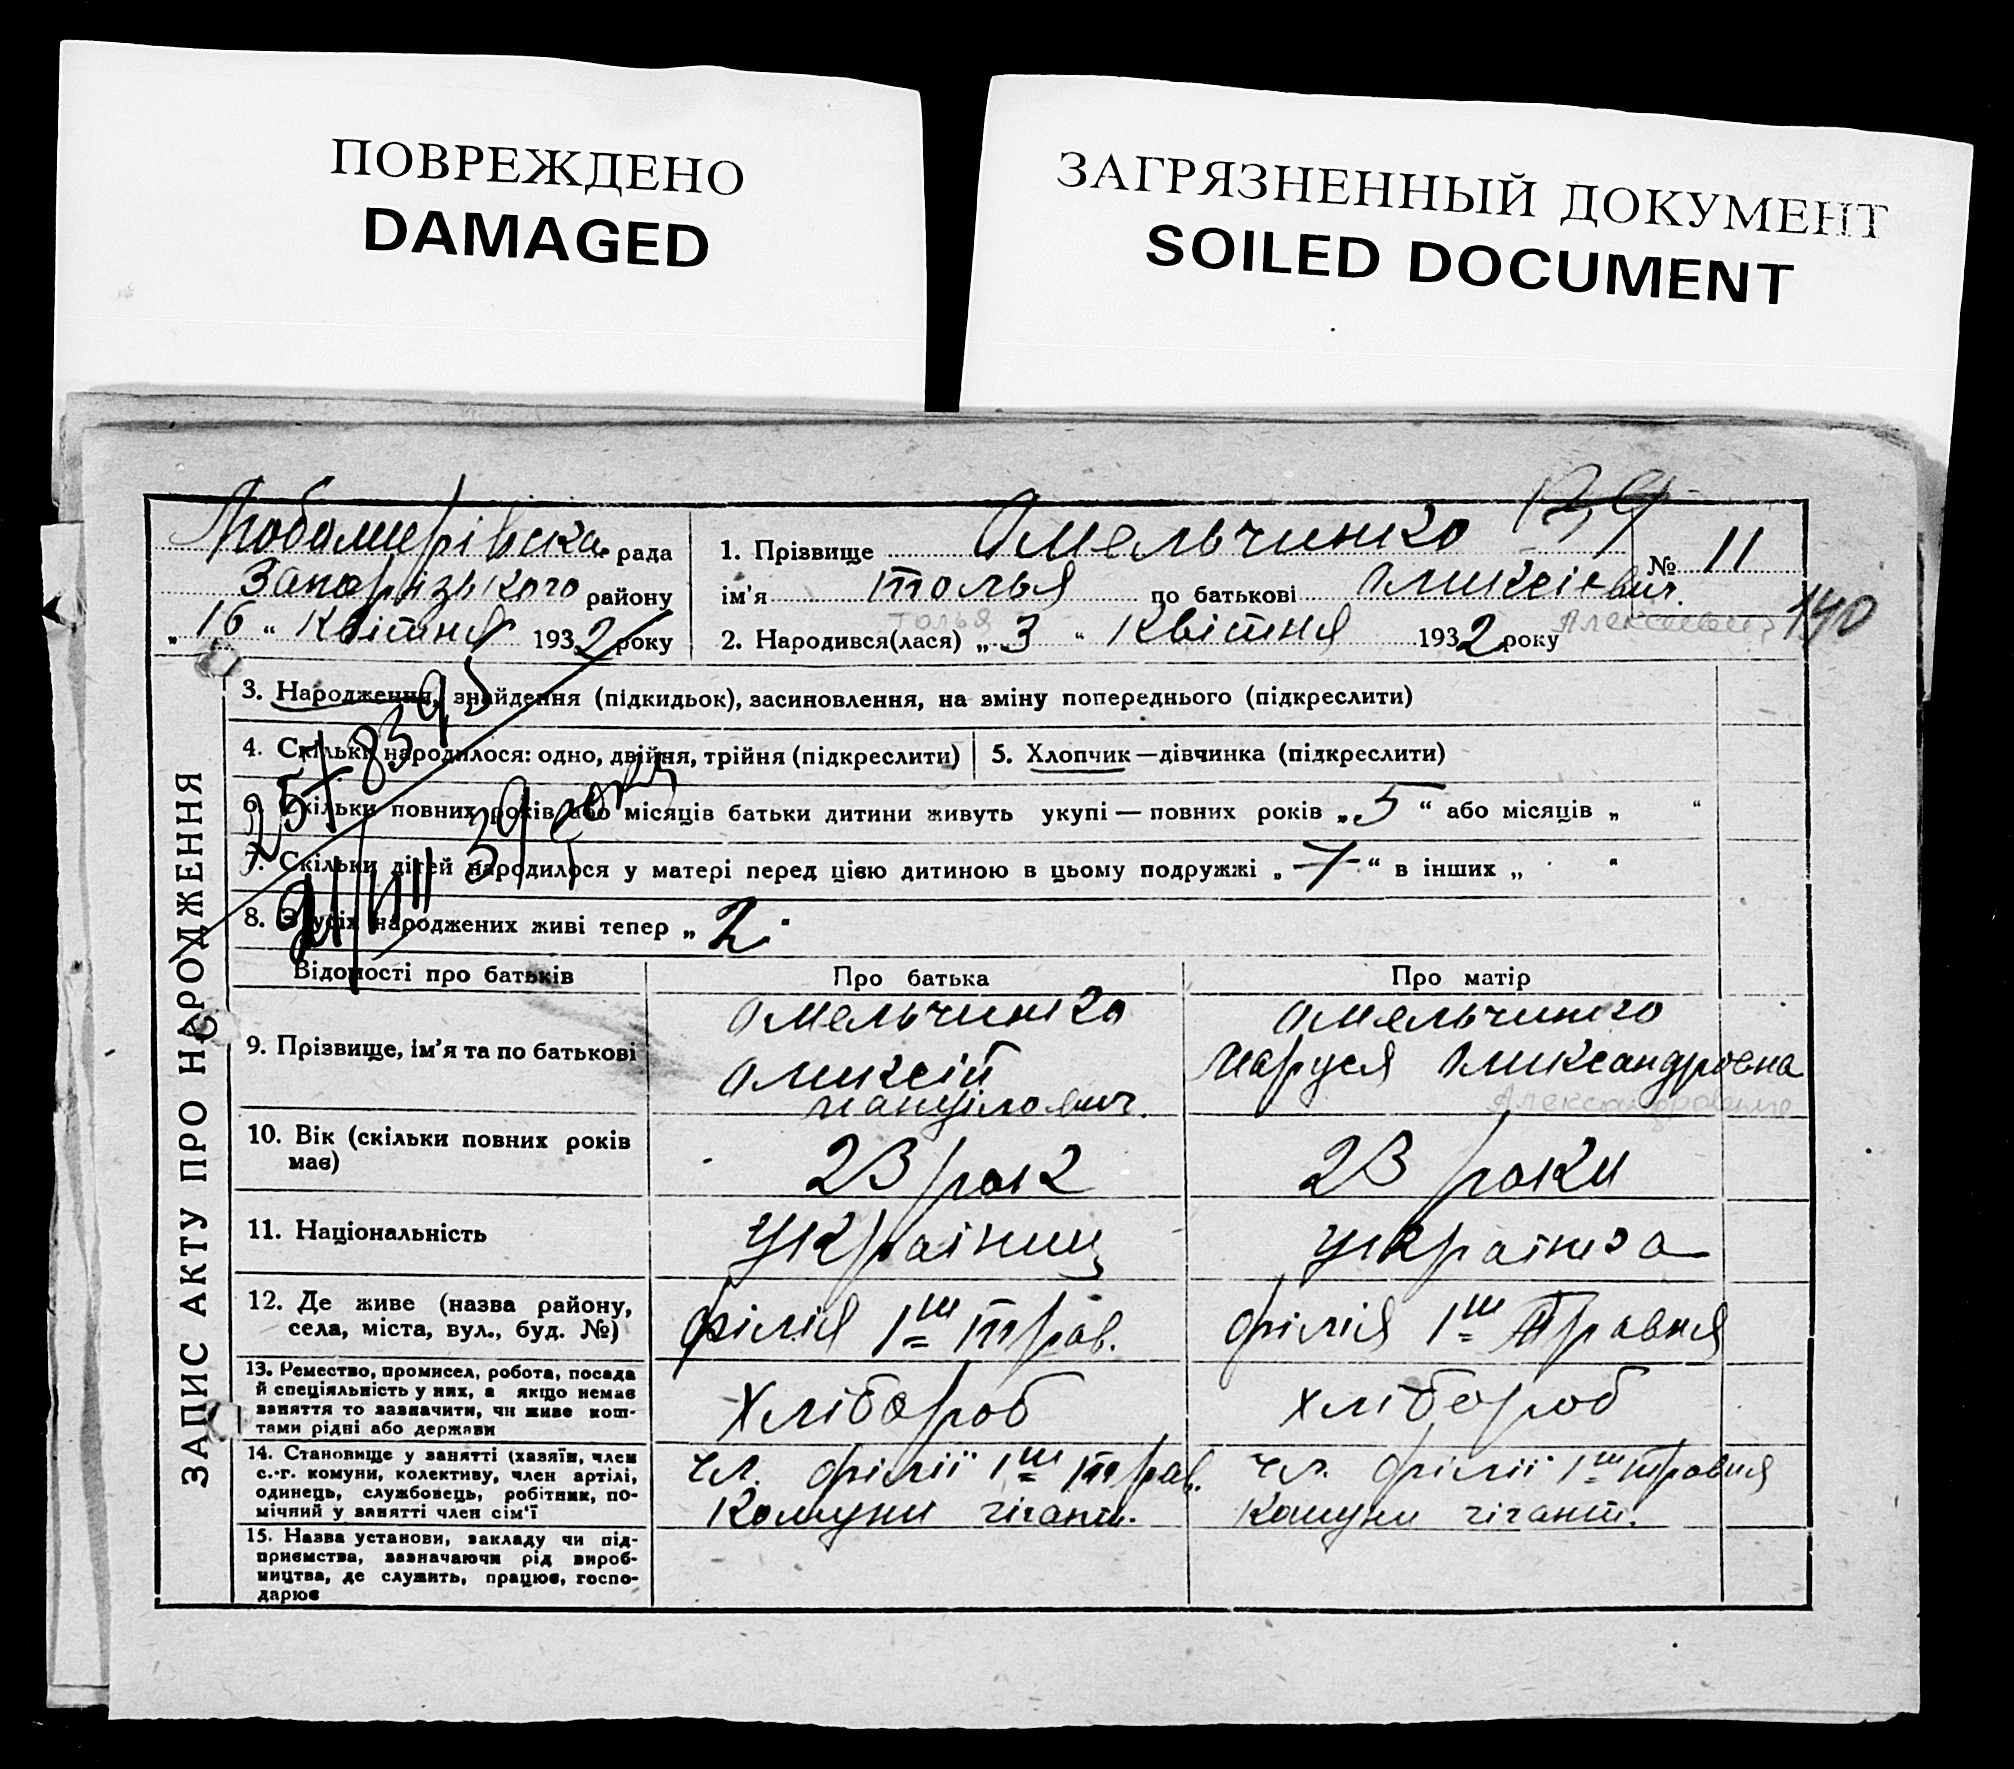 ПОВРЕЖДЕНО
DAMAGED
ЗАГРЯЗНЕННЫЙ ДОКУМЕНТ
SOILED DOCUMENT
139
Любомирівська рада
Запорізького району
„ 16 “ Квітня 1932 року
1. Прізвище Омельчинко
№ 11
ім'я толья по батькові Аликсієвич.
толья
Алексеевич
140
2. Народився(лася) „ 3 “ Квітня 1932 року
ЗАПИС АКТУ ПРО НАРОДЖЕННЯ
3. Народження, знайдення (підкидьок), засиновлення, на зміну попереднього (підкреслити)
4. Скільки народилося: одно, двійня, трійня (підкреслити)
5. Хлопчик—дівчинка (підкреслити)
6. Скільки повних років або місяців батьки дитини живуть укупі — повних років „ 5 “ або місяців „ “
7. Скільки дітей народилося у матері перед цією дитиною в цьому подружжі „ 1 “ в інших „ “
8. З усіх народжених живі тепер „ 2 “
Відомості про батьків
Про батька
Про матір
9. Прізвище, ім'я та по батькові
Омельчинко
Аликсій
Омельчинко
Маруся Аликсандровна
Александровна
10. Вік (скільки повних років має)
23 рок
23 роки
11. Національність
Україниц
українка
12. Де живе (назва району, села, міста, вул., буд. №)
філія 1ш трав.
філія 1ш Травня
13. Ремество, промисел, робота, посада й спеціяльність у них, а якщо немає заняття то зазначити, чи живе коштами рідні або держави
Хлібороб
хлібороб
14. Становище у занятті (хазяїн, член с.-г. комуни, колективу, член артілі, одинець, службовець, робітник, помічний у занятті член сім'ї
чл. філії 1ш трав.
Комуни гігант.
чл. філії 1ш травня
Комуни гігант.
15. Назва установи, закладу чи підприємства, зазначаючи рід виробництва, де служить, працює, господарює